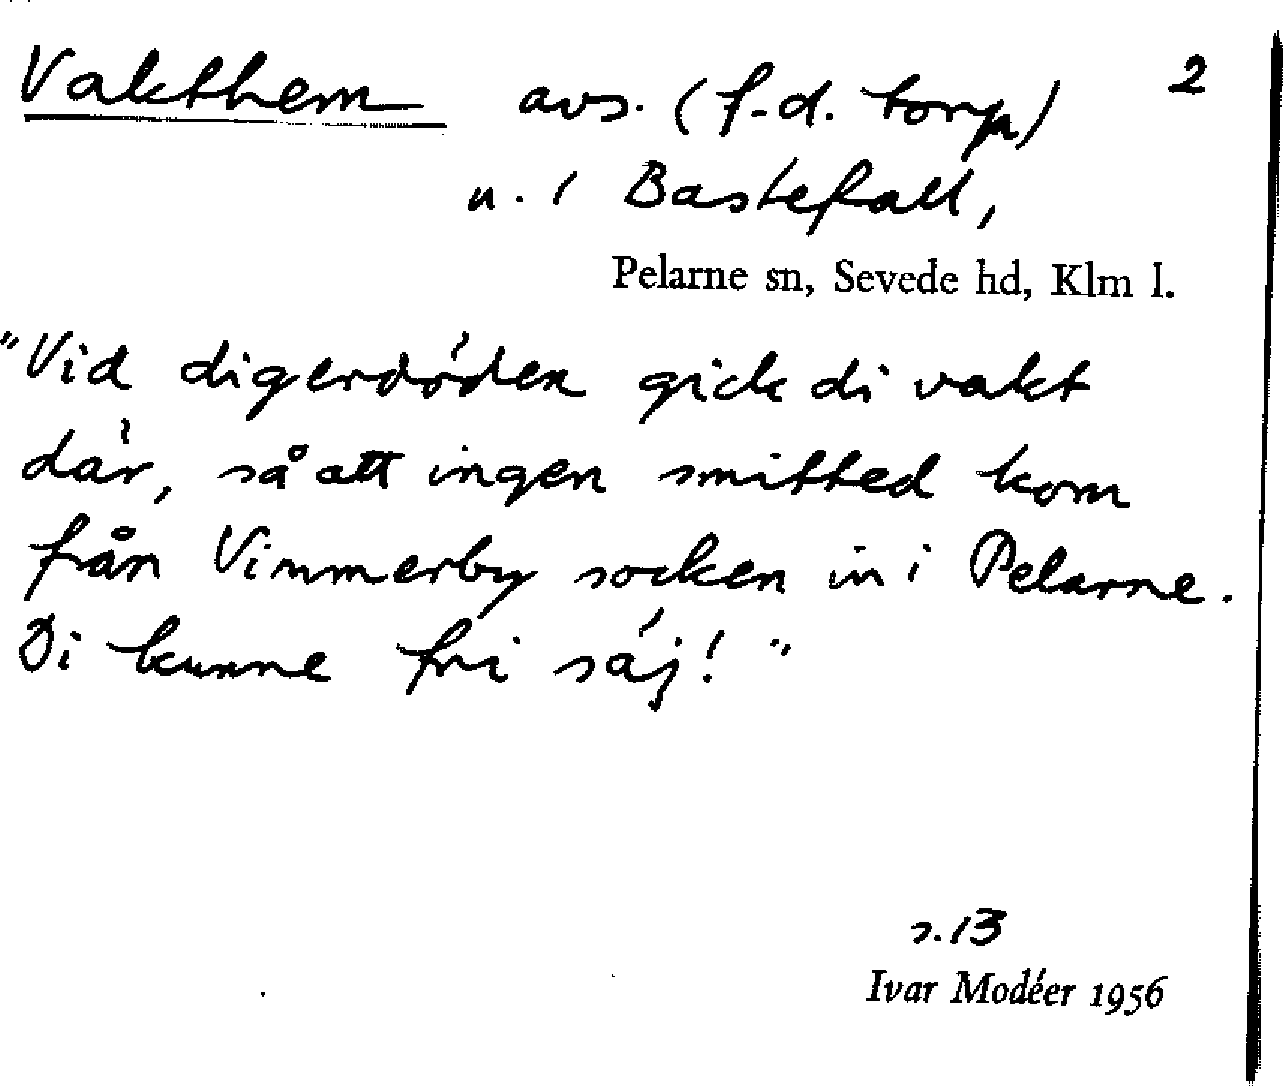 Vakthem avs. (f.d. torp) 2
u. 1 Bastefall,
Pelarne sn, Sevede hd, Klm l.
"Vid digerdöden gick di vakt
där, så att ingen smitted kom
från Vimmerby socken in i Pelarne.
Di kunne fri säj!"
s. 13
Ivar Modéer 1956